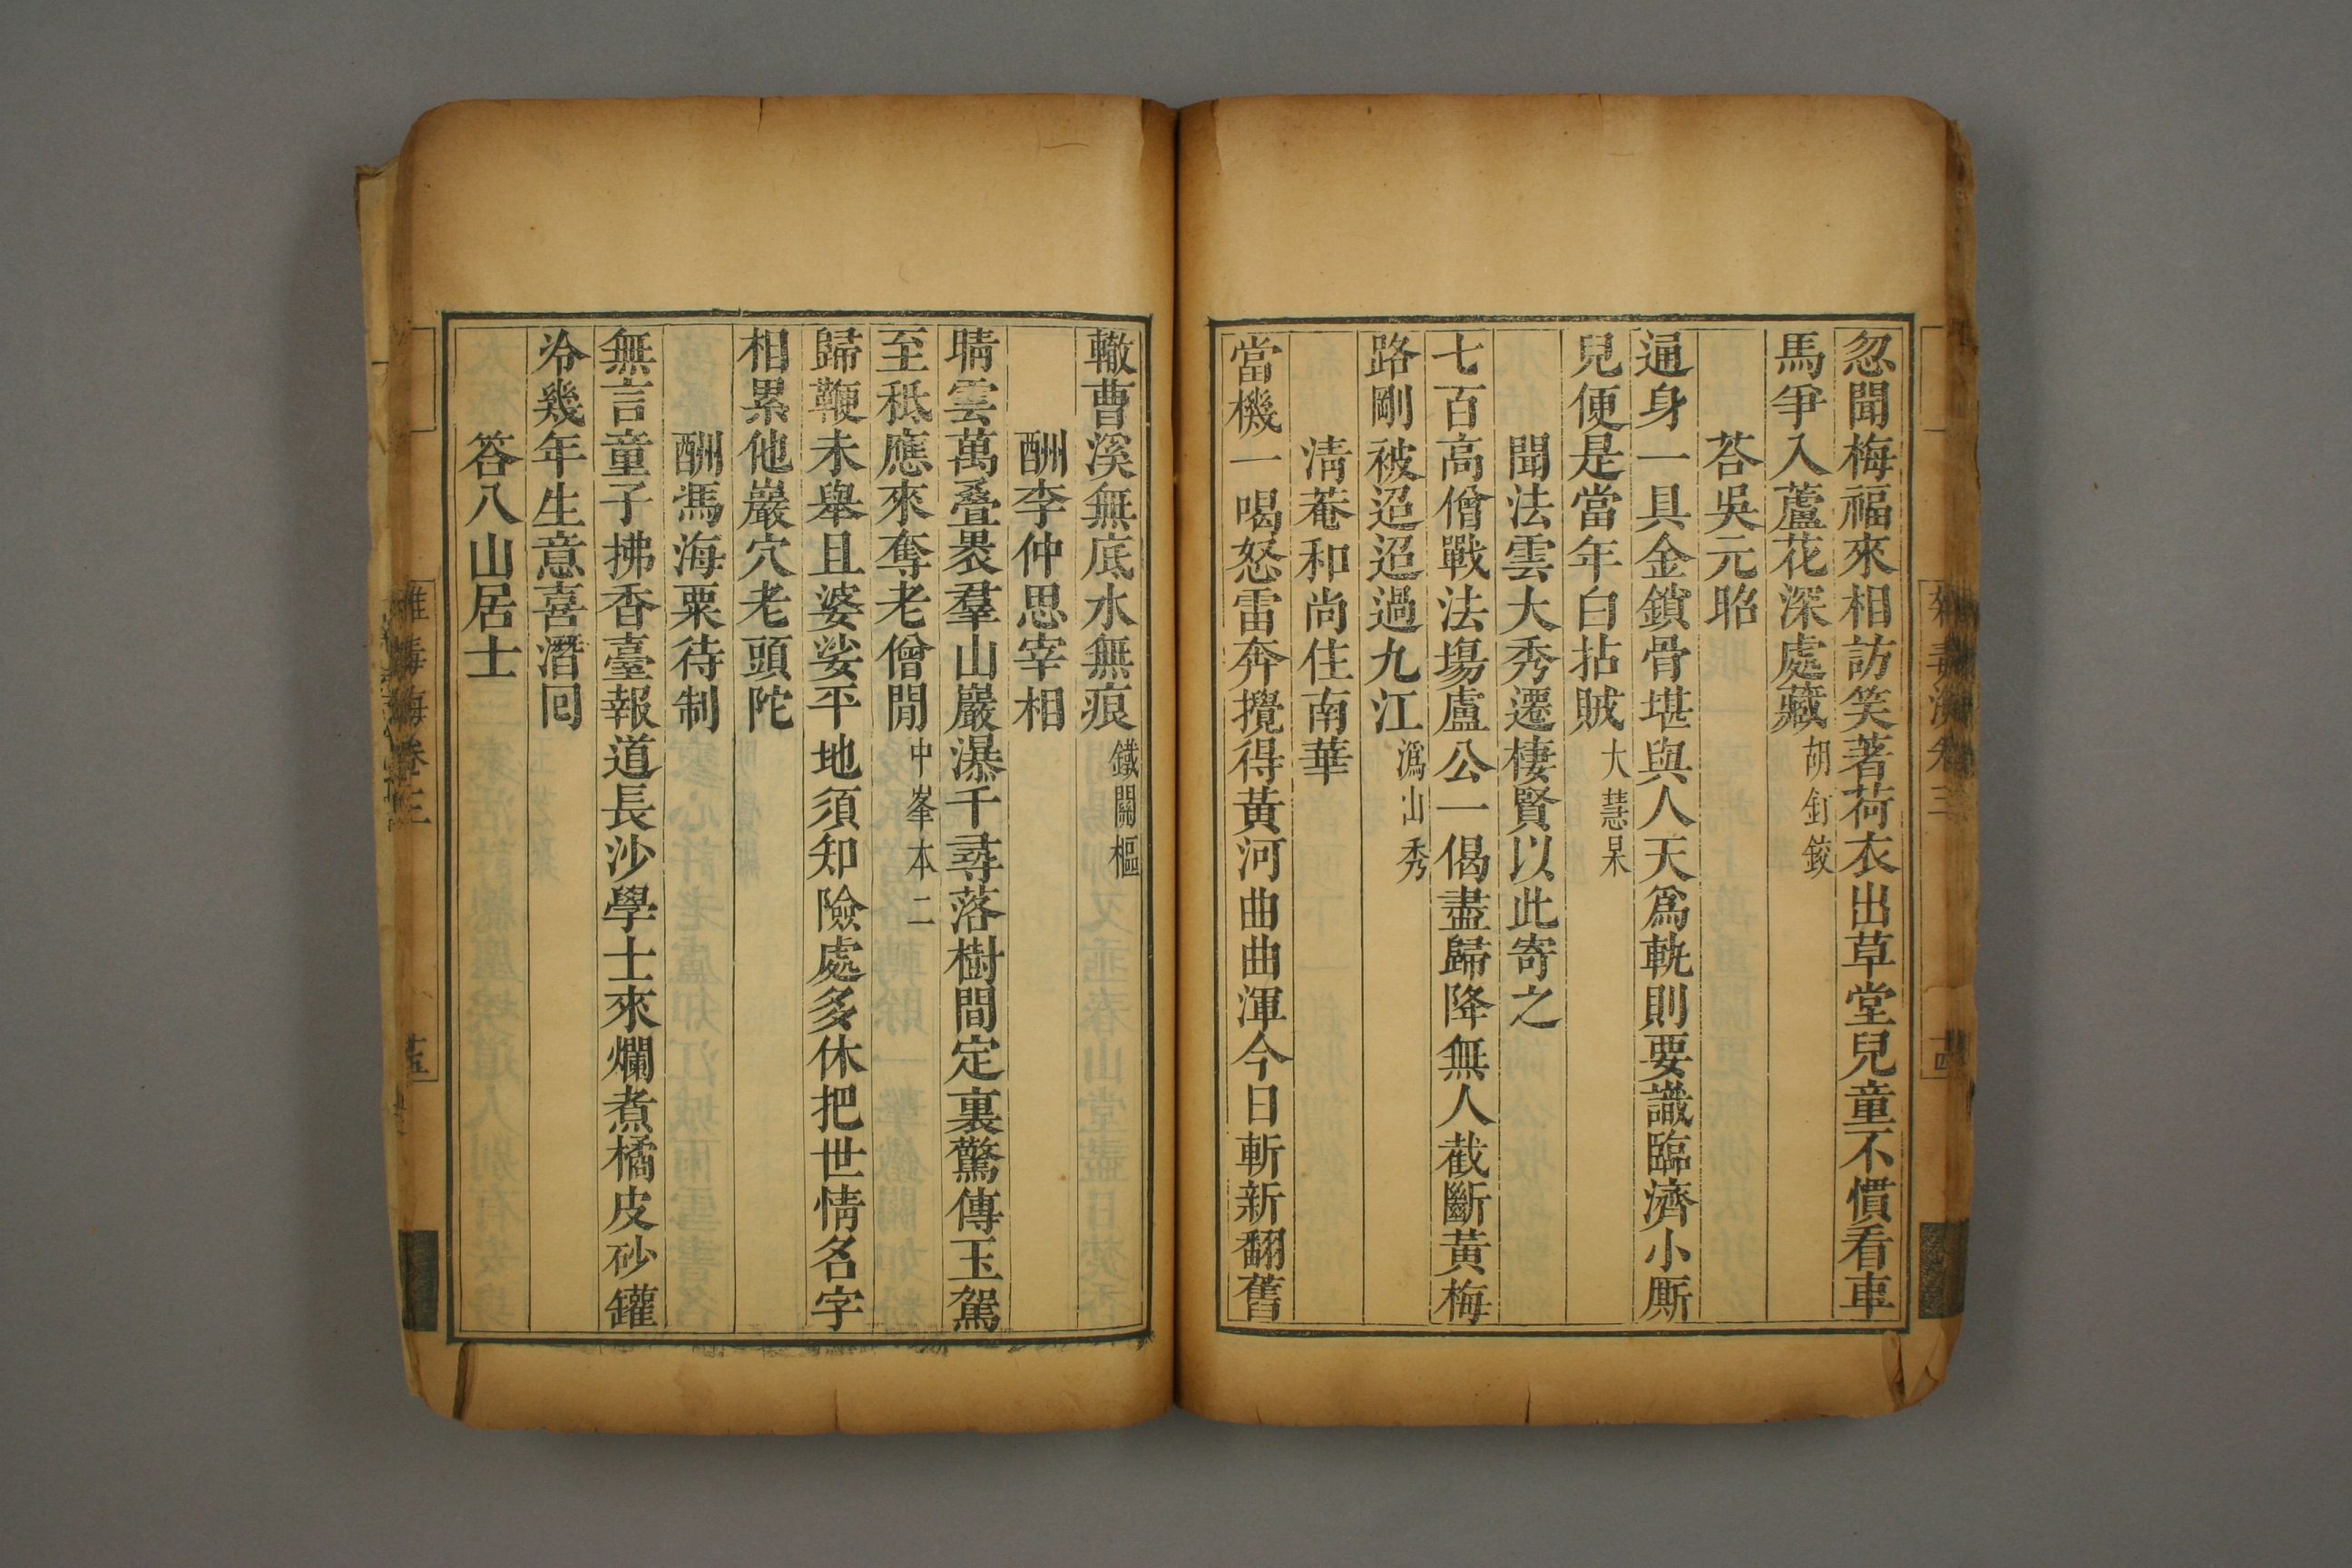 忽聞梅福來相訪笑著荷衣出草堂兒童不慣看車
馬爭入蘆花深處藏 胡釘鉸
荅吳元昭
通身一具金鎖骨堪與人天爲軌則要識臨濟小厮
兒便是當年白拈賊 大慧杲
聞法雲大秀遷棲賢以此寄之
七百高僧戰法場盧公一偈盡歸降無人截斷黃梅
路剛被迢迢過九江 潙山秀
淸菴和尚住南華
當機一喝怒雷奔攪得黃河曲曲渾今日斬新翻舊
轍曹溪無底水無痕 鐵關樞
酬李仲思宰相
晴雲萬疊褁羣山巖瀑千尋落樹間定裏驚傳玉駕
至秪應來奪老僧閒 中峯本二
歸鞭未舉且婆娑平地須知險處多休把世情名字
相累他巖穴老頭陀
酬馮海粟待制
無言童子拂香臺報道長沙學士來爛煮橘皮砂罐
冷幾年生意喜潛回
答八山居士